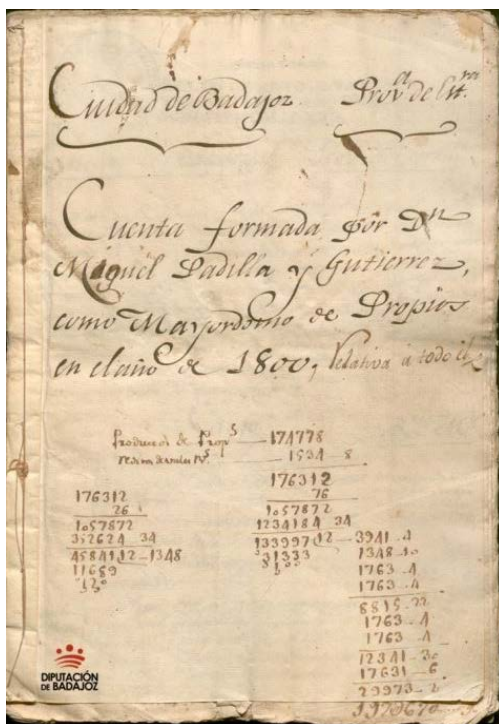 Ciudad de Badajoz Prov.ª de Ext.ra
Cuenta formada por Dn
Miguel Padilla y Gutierrez,
como Mayordomo de Propios
en el año de 1800, relativa á todo él
Productos de Props — 174778
1534 8
176312
76
1057872
1234184 34
133997 12 — 3941 4
31333
176312
26
1057872
352624 34
458411 12 — 1348
11689
1348 10
1763 4
1763 4
8815 22
1763 4
1763 4
12341 30
17631 6
29973 2
DIPUTACIÓN
DE BADAJOZ